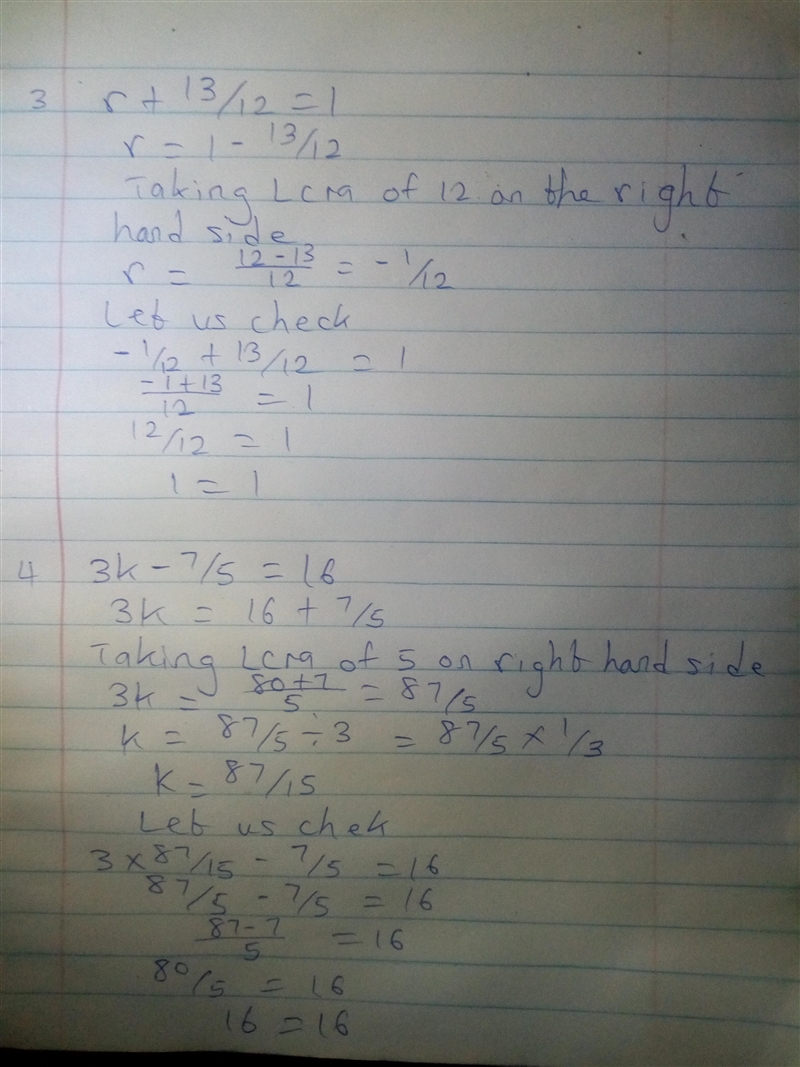 3 r + 13/12 = 1
r = 1 - 13/12
Taking Lcm of 12 on the right
hand side
r = 12 - 13/12 = - 1/12
Let us check
- 1/12 + 13/12 = 1
-1 + 13/12 = 1
12/12 = 1
1 = 1
4 3k - 7/5 = 16
3k = 16 + 7/5
Taking Lcm of 5 on right hand side
3k = 80 + 7/5 = 87/5
k = 87/5 ÷ 3 = 87/5 × 1/3
k = 87/15
Let us chek
3 × 87/15 - 7/5 = 16
87/5 - 7/5 = 16
87 - 7/5 = 16
80/5 = 16
16 = 16